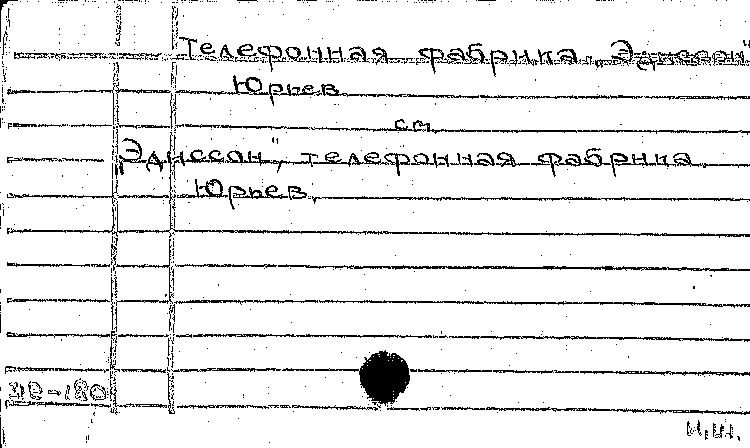 Телефонная фабрика „Эдиссон"
Юрьев
см.
„Эдиссон", телефонная фабрика.
Юрьев.
И.Ш.